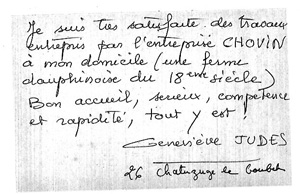 Je suis très satisfaite des travaux
entrepris par l'entreprise CHOVIN
à mon domicile (une ferme
dauphinoise du 18eme siècle)
Bon accueil, serieux, competence
et rapidité, tout y est !
Geneviève JUDES
26 Chatuzange le Goubet